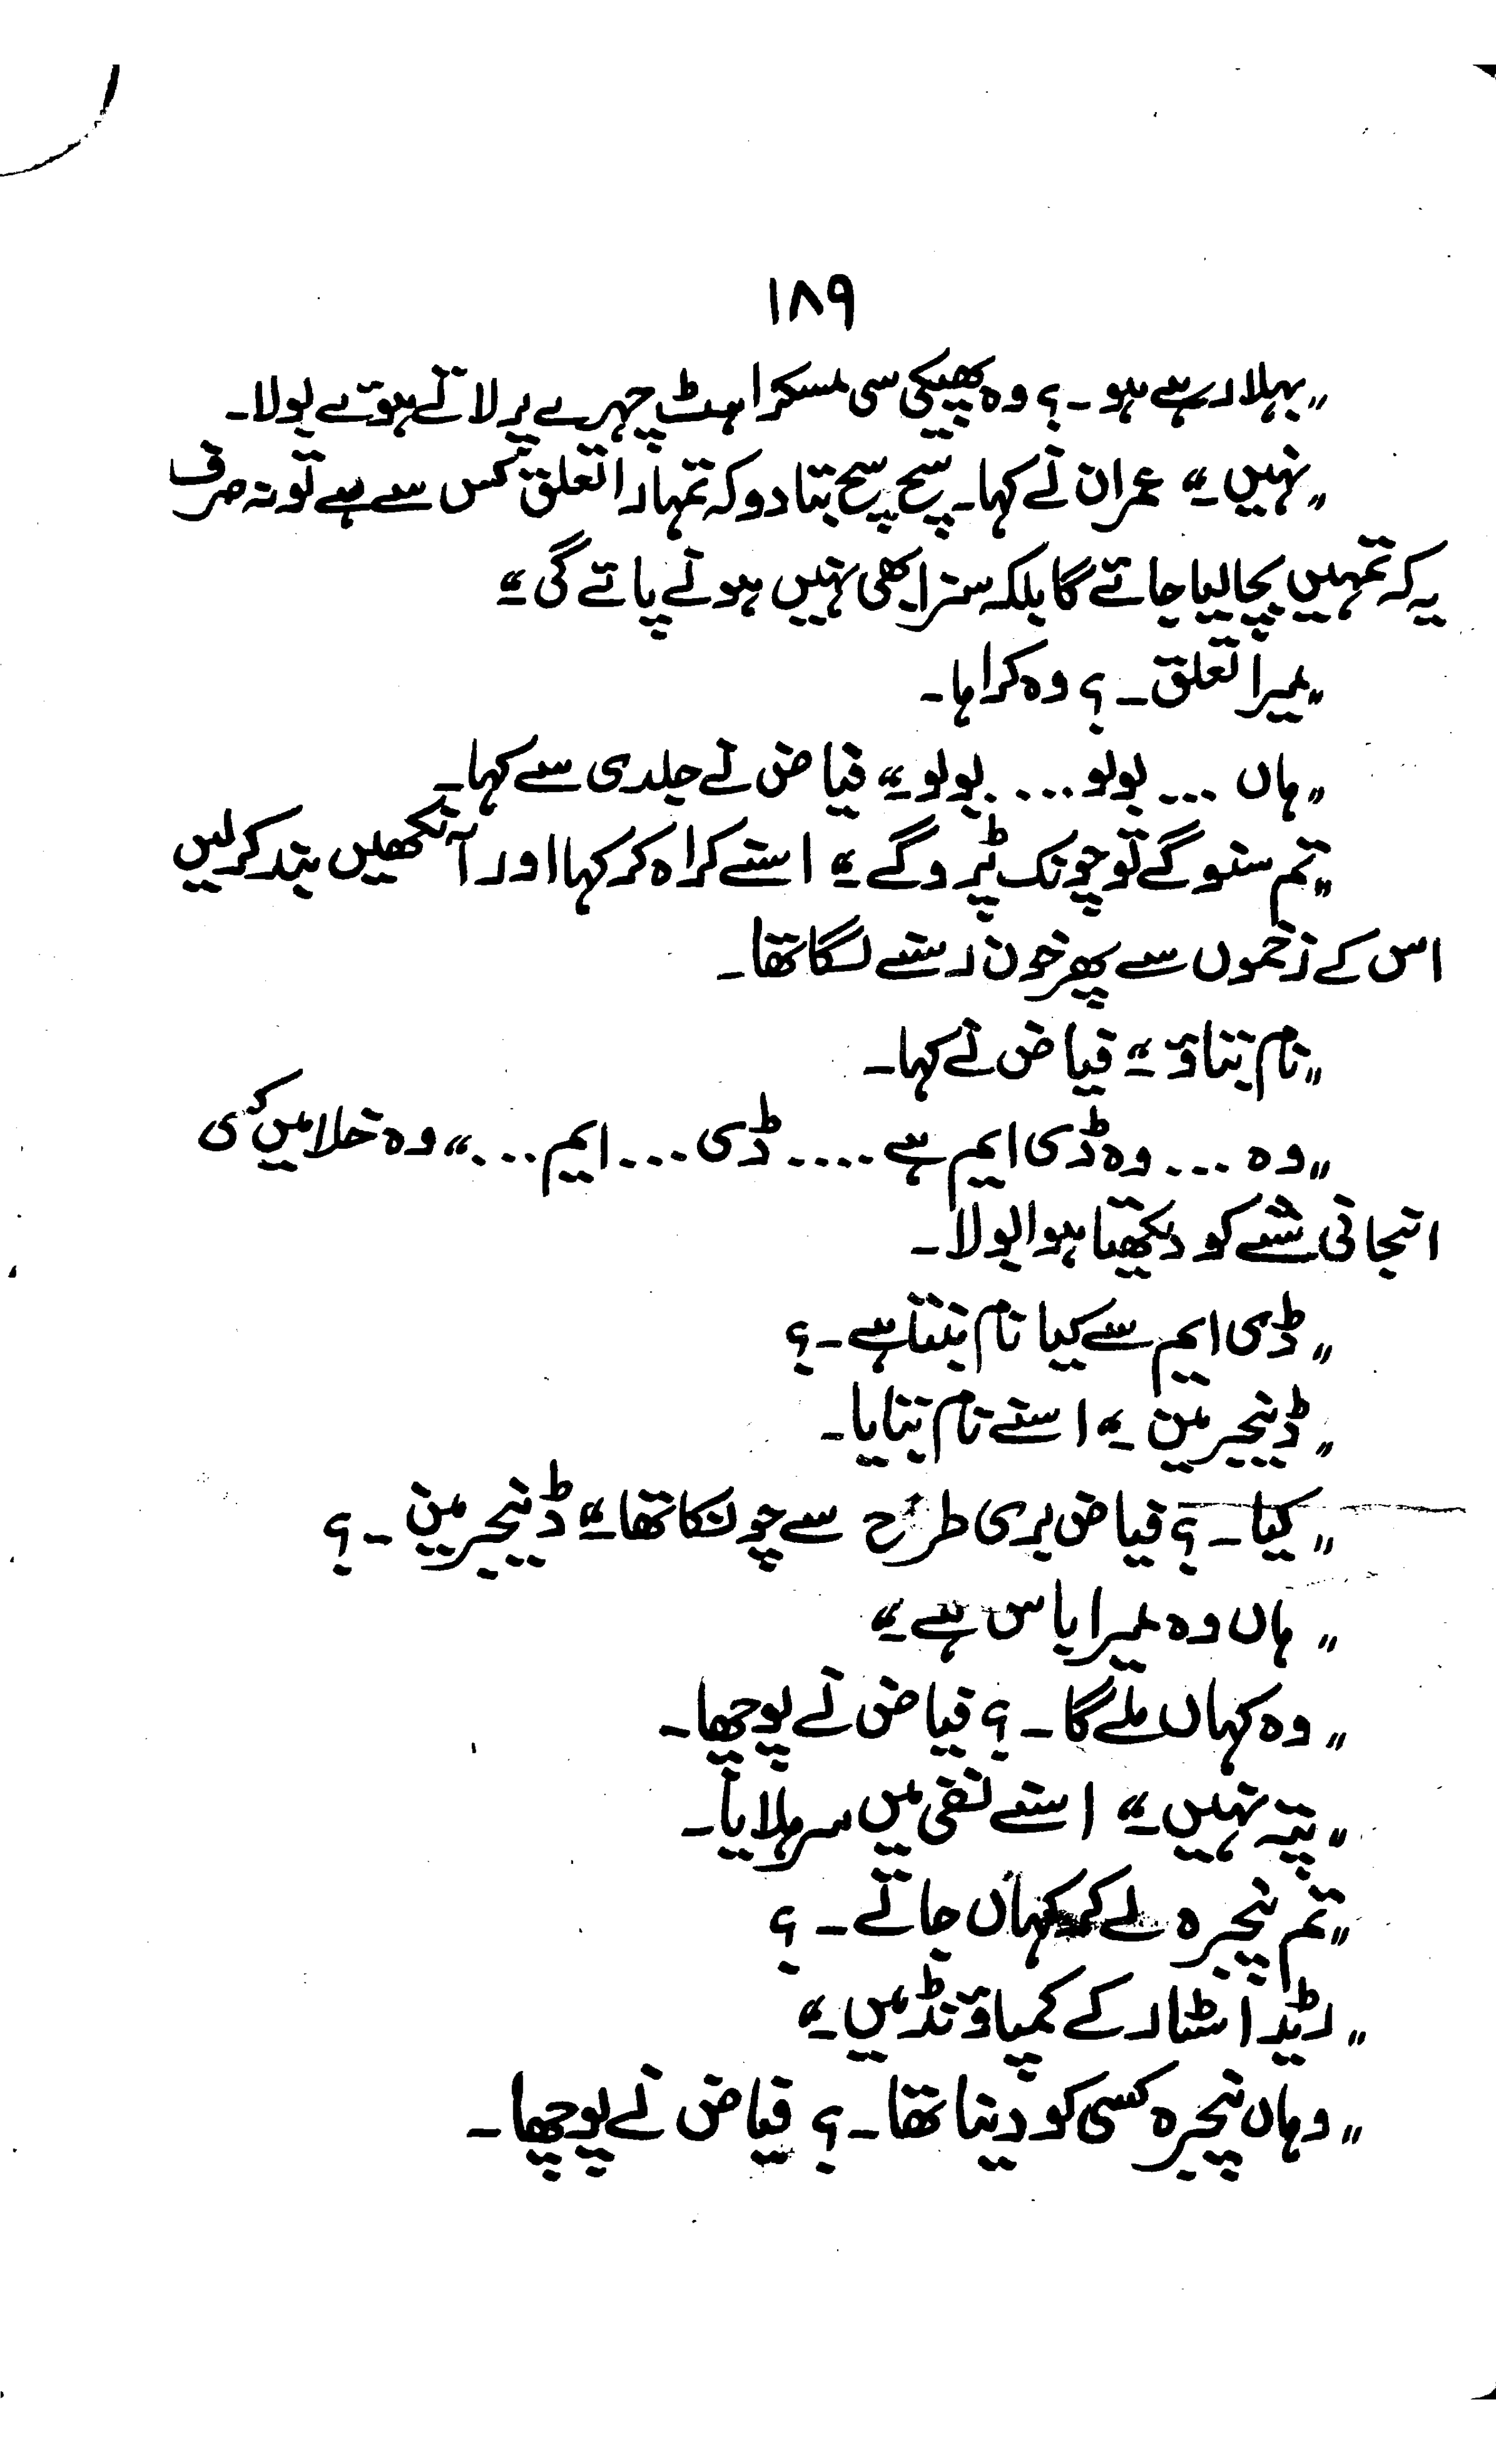 ۱۸۹
"بہلا رہے ہو۔؟ وہ پھیکی سی مسکراہٹ چہرے پر لاتے ہوئے بولا۔
"نہیں۔" عمران نے کہا۔ سچ سچ بتا دو کہ تمہارا تعلق کس سے ہے تو نہ صرف
یہ کہ تمہیں بچا لیا جائے گا بلکہ سزا بھی نہیں ہونے پائے گی۔"
"میرا تعلق۔؟ وہ کراہا۔
"ہاں ... بولو .... بولو۔" فیاض نے جلدی سے کہا۔
"تم سنو گے تو چونک پڑو گے۔" اسنے کراہ کر کہا اور آنکھیں بند کر لیں
اس کے زخموں سے پھر خون رسنے لگا تھا۔
"نام بتاؤ۔" فیاض نے کہا۔
"وہ ... وہ ڈی ایم ہے .... ڈی ... ایم ..." وہ خلا میں کسی
انجانی شئے کو دیکھتا ہوا بولا۔
"ڈی ایم سے کیا نام بنتا ہے۔؟
"ڈینجر مین۔" اسنے نام بتایا۔
"کیا۔؟ فیاض بری طرح سے چونکا تھا۔" ڈینجر مین۔؟
"ہاں وہ میرا باس ہے۔"
"وہ کہاں ملے گا۔؟ فیاض نے پوچھا۔
"پتہ نہیں۔" اسنے نفی میں سر ہلایا۔
"تم پنجرہ لے کر کہاں جاتے۔؟
"ریڈ اسٹار کے کمپاؤنڈ میں۔"
"وہاں پنجرہ کسی کو دینا تھا۔؟ فیاض نے پوچھا۔